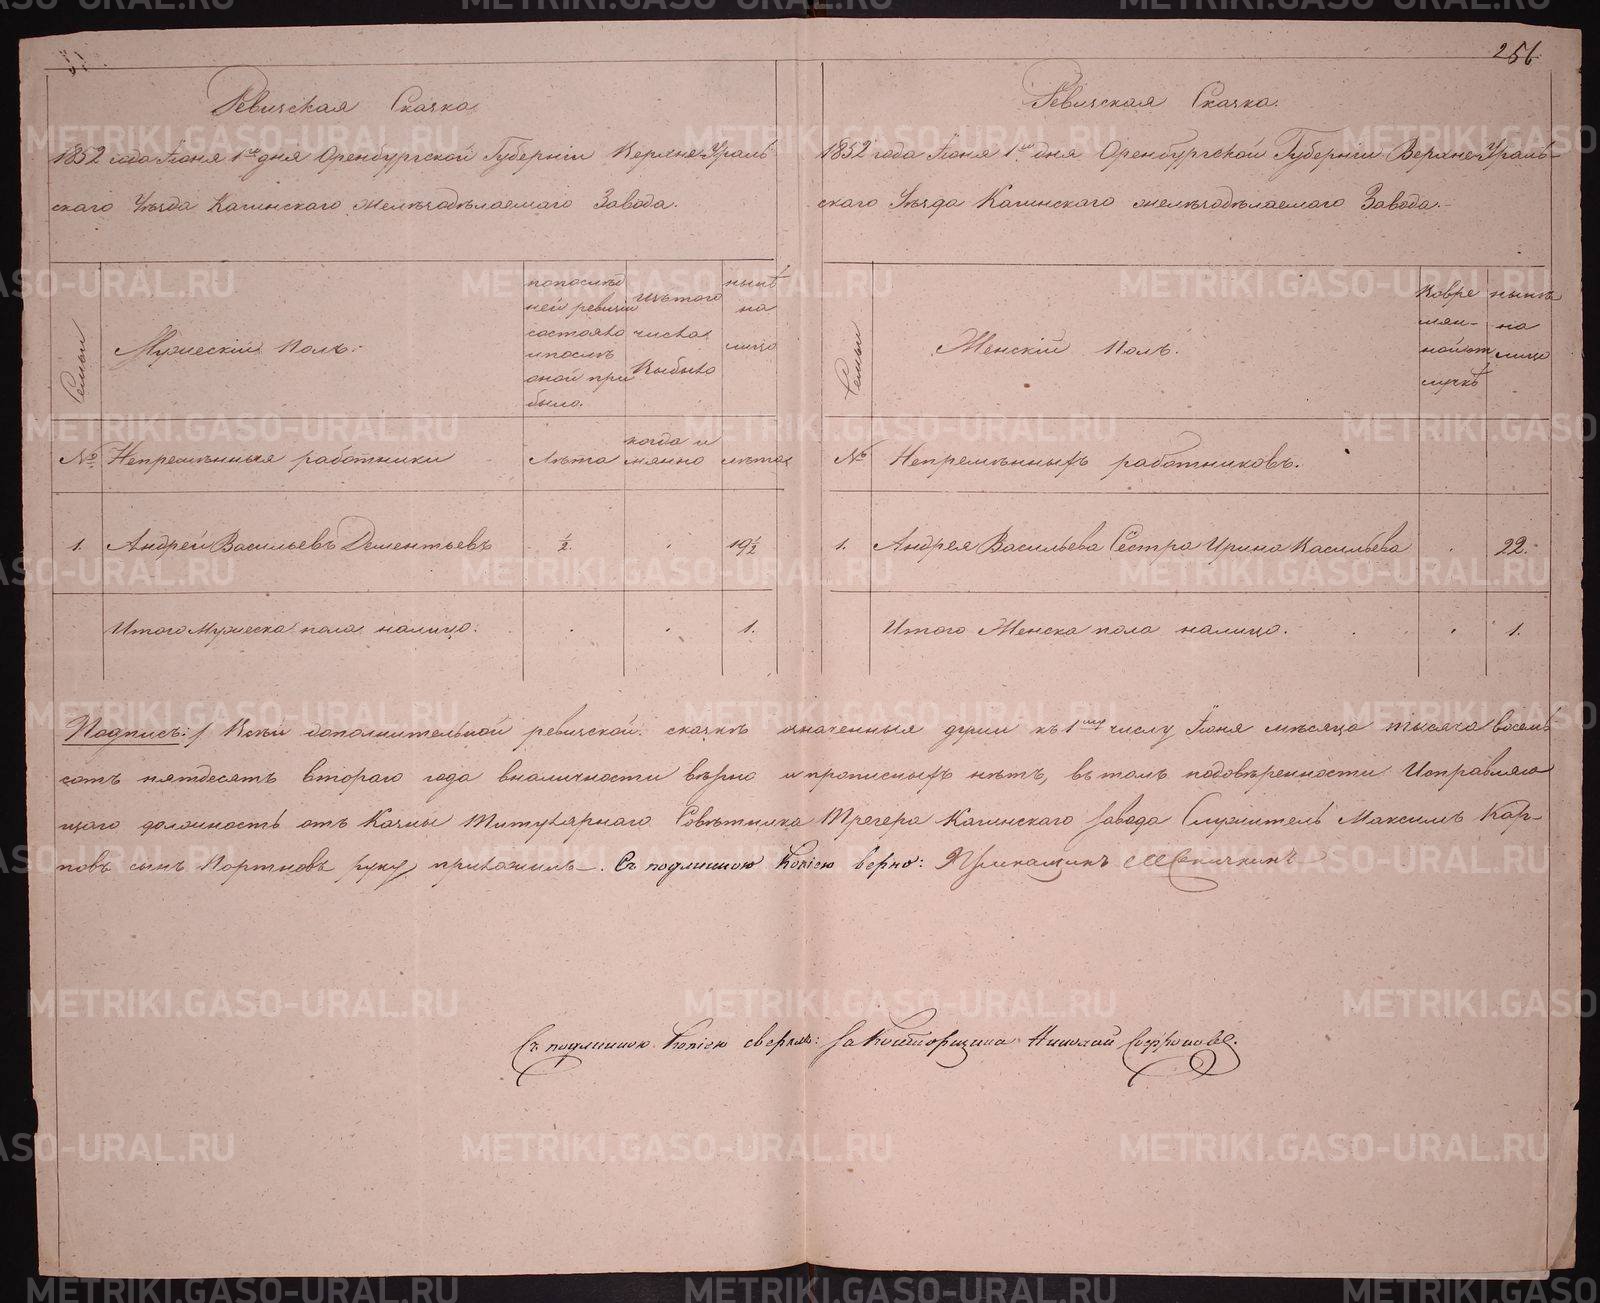 256
Ревизская Сказка
1852 года Іюня 1го дня Оренбургской Губерніи Верхне-Ураль
скаго Уѣзда Кагинскаго желѣзодѣлаемаго Завода.
Семьи
Мужескій Полъ.
по послѣд
ней ревизіи
состояло
и послѣ
оной при
было.
Изъ того
числа
выбыло
нынѣ
на
лицо
№ Непремѣнныя работники
Лѣта
когда и
мянно
лѣта
1. Андрей Васильевъ Дементьевъ ½ 19½
Итого Мужеска пола на лицо: 1.
Ревизская Сказка.
1852 года Іюня 1го дня Оренбургской Губерніи Верхне-Ураль-
скаго Уѣзда Кагинскаго желѣзодѣлаемаго Завода.-
Семьи
Женскій Полъ.
Во вре
мян-
ной от
лучкѣ
нынѣ
на
лицо
№ Непремѣнныхъ работниковъ.
1. Андрея Васильева Сестра Ирина Васильева 22.
Итого Женска пола на лицо. 1.
Подпись:/ Къ сей дополнительной ревизской сказкѣ означенныя души къ 1му числу Іюня мѣсяца тысяча восемь
сотъ пятдесятъ втораго года въ наличности вѣрно и прописныхъ нѣтъ, въ томъ по довѣренности Исправляю
щаго должность отъ Казны Титулярнаго Совѣтника Трегера Кагинскаго Завода Служитель Максимъ Кар-
повъ сынъ Портновъ руку приложилъ. Съ подлинною копіею вѣрно: Прикащикъ
Съ подлинною копіею сверялъ: За Конторщика Николай Софроновъ.
METRIKI.GASO-URAL.RU